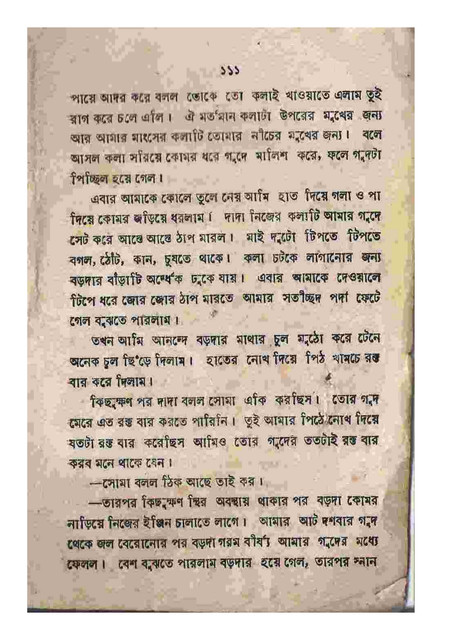 ১১১
পায়ে আদর করে বলল তোকে তো কলাই খাওয়াতে এলাম তুই
রাগ করে চলে এলি। ঐ মর্তমান কলাটা উপরের মুখের জন্য
আর আমার মাংসের কলাটি তোমার নীচের মুখের জন্য। বলে
আসল কলা সরিয়ে কোমর ধরে গুদে মালিশ করে, ফলে গুদটা
পিচ্ছিল হয়ে গেল।
এবার আমাকে কোলে তুলে নেয় আমি হাত দিয়ে গলা ও পা
দিয়ে কোমর জড়িয়ে ধরলাম। দাদা নিজের কলাটি আমার গুদে
সেট করে আস্তে আস্তে ঠাপ মারল। মাই দুটো টিপতে টিপতে
বগল, ঠোঁট, কান, চুষতে থাকে। কলা চটকে লাগানোর জন্য
বড়দার বাঁড়াটি অর্ধেক ঢুকে যায়। এবার আমাকে দেওয়ালে
টিপে ধরে জোর জোর ঠাপ মারতে আমার সতীচ্ছদ পর্দা ফেটে
গেল বুঝতে পারলাম।
তখন আমি আনন্দে বড়দার মাথার চুল মুঠো করে টেনে
অনেক চুল ছিঁড়ে দিলাম। হাতের নোখ দিয়ে পিঠ খামচে রক্ত
বার করে দিলাম।
কিছুক্ষণ পর দাদা বলল সোমা একি করছিস। তোর গুদ
মেরে এত রক্ত বার করতে পারিনি। তুই আমার পিঠে নোখ দিয়ে
যতটা রক্ত বার করেছিস আমিও তোর গুদের ততটাই রক্ত বার
করব মনে থাকে যেন।
—সোমা বলল ঠিক আছে তাই কর।
—তারপর কিছুক্ষণ স্থির অবস্থায় থাকার পর বড়দা কোমর
নাড়িয়ে নিজের ইঞ্জিন চালাতে লাগে। আমার আট দশবার গুদ
থেকে জল বেরোনোর পর বড়দা গরম বীর্য্য আমার গুদের মধ্যে
ফেলল। বেশ বুঝতে পারলাম বড়দার হয়ে গেল, তারপর স্নান